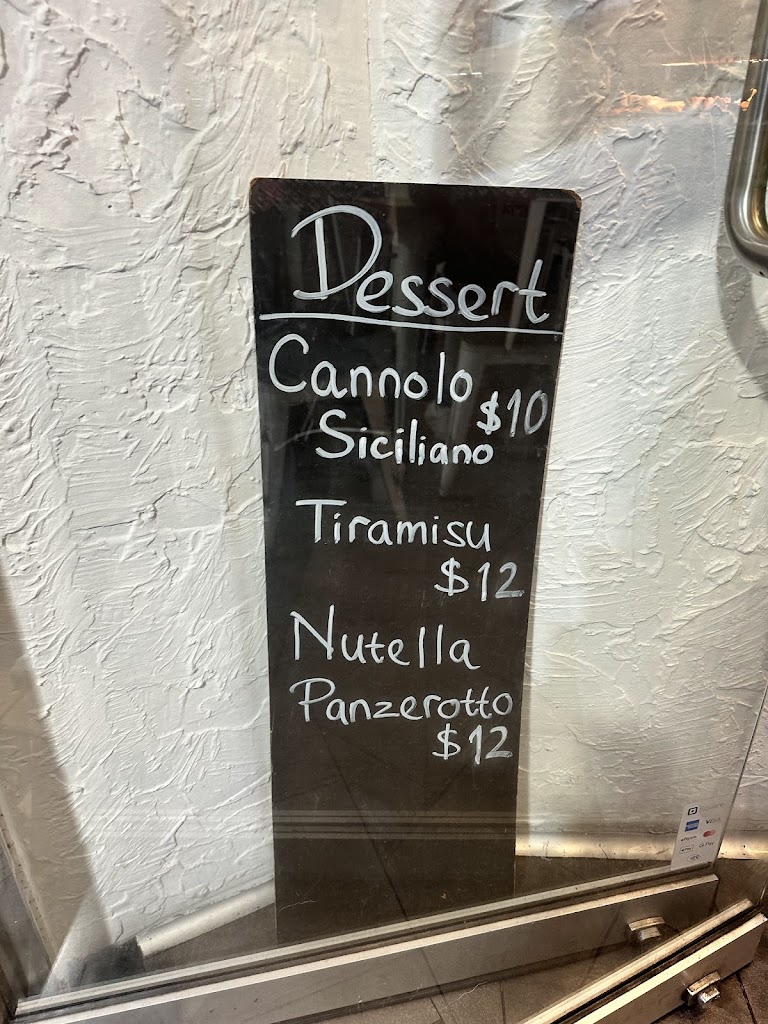 Dessert
Cannolo
$10
Siciliano
Tiramisu
$12
Nutella
Panzerotto
$12
VISA
G Pay